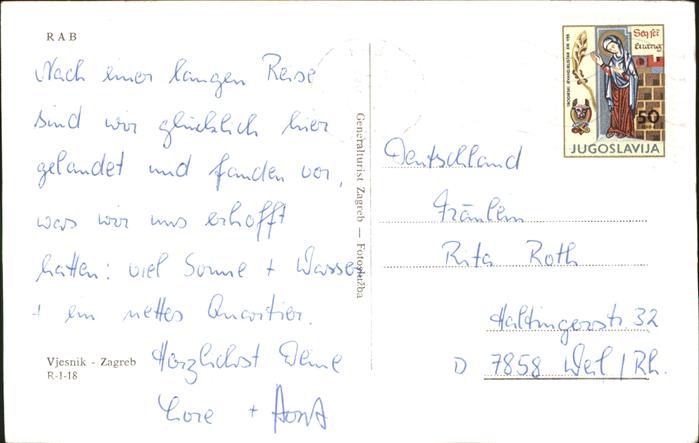 RAB
Nach einer langen Reise
sind wir glücklich hier
gelandet und fanden vor,
was wir uns erhofft
hatten: viel Sonne + Wasser
+ ein nettes Quartier.
Herzlichst Deine
Lore +
Vjesnik - Zagreb
R-1-18
Generalturist Zagreb — Fotoslužba
JUGOSLAVIJA
50
Deutschland
Fräulein
Rita Roth
Haltingerstr. 32
D 7858 Weil / Rh.